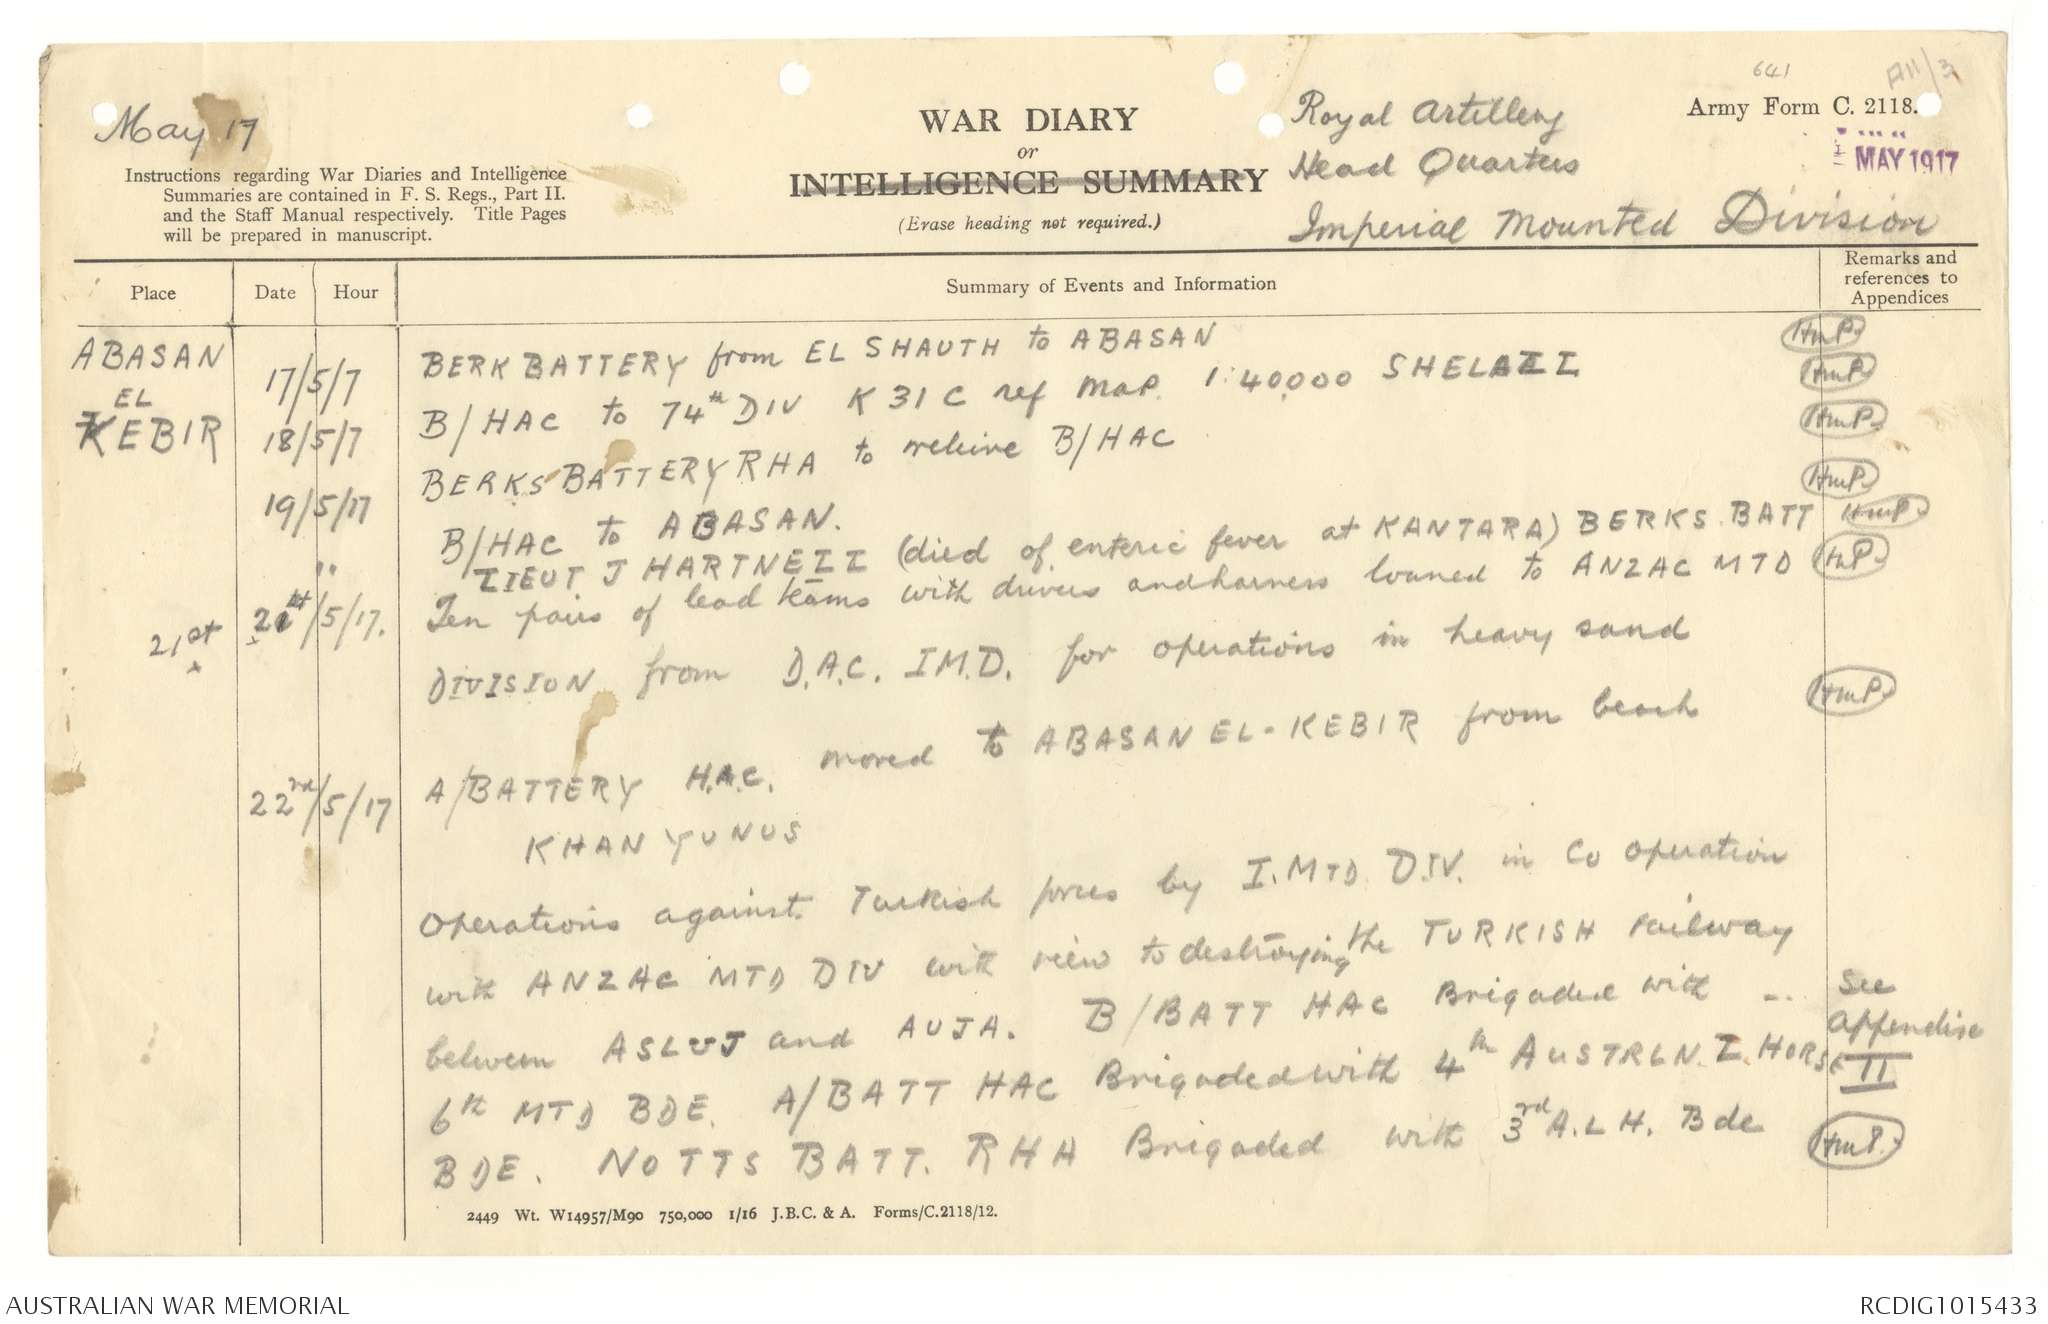 641
A11/3
May 17
WAR DIARY
or
INTELLIGENCE SUMMARY
(Erase heading not required.)
Royal Artillery
Head Quarters
Imperial Mounted Division
Army Form C. 2118.
MAY 1917
Instructions regarding War Diaries and Intelligence
Summaries are contained in F. S. Regs., Part II.
and the Staff Manual respectively. Title Pages
will be prepared in manuscript.
Place Date Hour Summary of Events and Information Remarks and references to Appendices
ABASAN
EL
KEBIR
17/5/7 BERK BATTERY from EL SHAUTH to ABASAN HmP.
18/5/7 B/HAC to 74th DIV K 31 C ref map. 1:40,000 SHELLAL HmP.
BERKS BATTERY RHA to relieve B/HAC HmP.
19/5/17 B/HAC to ABASAN. HmP.
" LIEUT J HARTNELL (died of enteric fever at KANTARA) BERKS. BATT HmP.
21st 21st/5/17. Ten pairs of lead teams with drivers and harness loaned to ANZAC MTD HmP.
DIVISION from D.A.C. I.M.D. for operations in heavy sand
22nd/5/17 A/BATTERY H.A.C. moved to ABASAN EL-KEBIR from beach HmP.
KHAN YUNUS
Operations against Turkish forces by I. MTD. DIV. in Co operation
with ANZAC MTD DIV with view to destroying the TURKISH railway
between ASLUJ and AUJA. B/BATT HAC Brigaded with - See
6th MTD BDE. A/BATT HAC Brigaded with 4th AUSTRLN. L. HORSE Appendise II
BDE. NOTTS BATT. RHA Brigaded with 3rd A.L.H. Bde HmP.
2449 Wt. W14957/M90 750,000 1/16 J.B.C. & A. Forms/C.2118/12.
AUSTRALIAN WAR MEMORIAL
RCDIG1015433